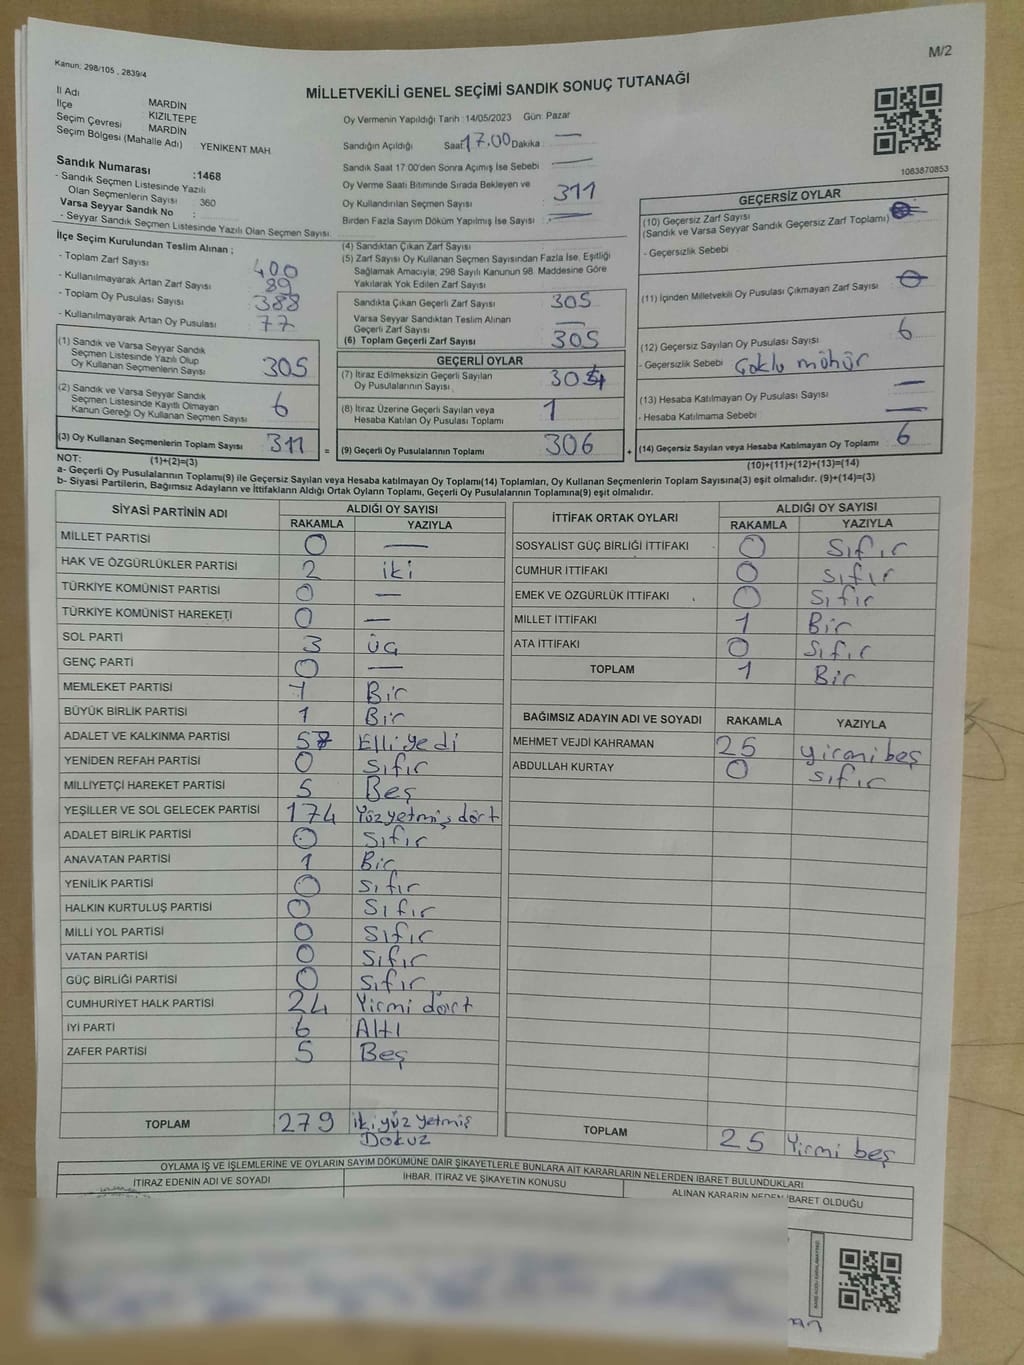 M/2
Kanun: 298/105 , 2839/4
MİLLETVEKİLİ GENEL SEÇİMİ SANDIK SONUÇ TUTANAĞI
İl Adı MARDİN
İlçe KIZILTEPE
Seçim Çevresi MARDİN
Seçim Bölgesi (Mahalle Adı) YENİKENT MAH.
Sandık Numarası :1468
- Sandık Seçmen Listesinde Yazılı
Olan Seçmenlerin Sayısı 360
Varsa Seyyar Sandık No :
- Seyyar Sandık Seçmen Listesinde Yazılı Olan Seçmen Sayısı:
Oy Vermenin Yapıldığı Tarih : 14/05/2023 Gün: Pazar
Sandığın Açıldığı Saat 17.00 Dakika —
Sandık Saat 17:00'den Sonra Açımış İse Sebebi —
Oy Verme Saati Bitiminde Sırada Bekleyen ve
Oy Kullandırılan Seçmen Sayısı 311
Birden Fazla Sayım Döküm Yapılmış İse Sayısı : —
1083870853
İlçe Seçim Kurulundan Teslim Alınan ;
- Toplam Zarf Sayısı 400
- Kullanılmayarak Artan Zarf Sayısı 89
- Toplam Oy Pusulası Sayısı 388
- Kullanılmayarak Artan Oy Pusulası 77
(1) Sandık ve Varsa Seyyar Sandık
Seçmen Listesinde Yazılı Olup
Oy Kullanan Seçmenlerin Sayısı 305
(2) Sandık ve Varsa Seyyar Sandık
Seçmen Listesinde Kayıtlı Olmayan
Kanun Gereği Oy Kullanan Seçmen Sayısı 6
(3) Oy Kullanan Seçmenlerin Toplam Sayısı 311
(1)+(2)=(3)
(4) Sandıktan Çıkan Zarf Sayısı
(5) Zarf Sayısı Oy Kullanan Seçmen Sayısından Fazla İse, Eşitliği
Sağlamak Amacıyla, 298 Sayılı Kanunun 98. Maddesine Göre
Yakılarak Yok Edilen Zarf Sayısı
Sandıkta Çıkan Geçerli Zarf Sayısı 305
Varsa Seyyar Sandıktan Teslim Alınan
Geçerli Zarf Sayısı —
(6) Toplam Geçerli Zarf Sayısı 305
=
GEÇERLİ OYLAR
(7) İtiraz Edilmeksizin Geçerli Sayılan
Oy Pusulalarının Sayısı
(8) İtiraz Üzerine Geçerli Sayılan veya
Hesaba Katılan Oy Pusulası Toplamı 1
(9) Geçerli Oy Pusulalarının Toplamı 306
+
GEÇERSİZ OYLAR
(10) Geçersiz Zarf Sayısı
(Sandık ve Varsa Seyyar Sandık Geçersiz Zarf Toplamı)
- Geçersizlik Sebebi
(11) İçinden Milletvekili Oy Pusulası Çıkmayan Zarf Sayısı 0
(12) Geçersiz Sayılan Oy Pusulası Sayısı 6
- Geçersizlik Sebebi Çoklu mühür
(13) Hesaba Katılmayan Oy Pusulası Sayısı —
- Hesaba Katılmama Sebebi —
(14) Geçersiz Sayılan veya Hesaba Katılmayan Oy Toplamı 6
(10)+(11)+(12)+(13)=(14)
NOT:
a- Geçerli Oy Pusulalarının Toplamı(9) ile Geçersiz Sayılan veya Hesaba katılmayan Oy Toplamı(14) Toplamları, Oy Kullanan Seçmenlerin Toplam Sayısına(3) eşit olmalıdır. (9)+(14)=(3)
b- Siyasi Partilerin, Bağımsız Adayların ve İttifakların Aldığı Ortak Oyların Toplamı, Geçerli Oy Pusulalarının Toplamına(9) eşit olmalıdır.
SİYASİ PARTİNİN ADI ALDIĞI OY SAYISI
RAKAMLA YAZIYLA
MİLLET PARTİSİ 0 —
HAK VE ÖZGÜRLÜKLER PARTİSİ 2 iki
TÜRKİYE KOMÜNİST PARTİSİ 0 —
TÜRKİYE KOMÜNİST HAREKETİ 0 —
SOL PARTİ 3 üç
GENÇ PARTİ 0 —
MEMLEKET PARTİSİ 1 Bir
BÜYÜK BİRLİK PARTİSİ 1 Bir
ADALET VE KALKINMA PARTİSİ 57 Elli yedi
YENİDEN REFAH PARTİSİ 0 sıfır
MİLLİYETÇİ HAREKET PARTİSİ 5 Beş
YEŞİLLER VE SOL GELECEK PARTİSİ 174 Yüzyetmiş dört
ADALET BİRLİK PARTİSİ 0 Sıfır
ANAVATAN PARTİSİ 1 Bir
YENİLİK PARTİSİ 0 sıfır
HALKIN KURTULUŞ PARTİSİ 0 Sıfır
MİLLİ YOL PARTİSİ 0 Sıfır
VATAN PARTİSİ 0 Sıfır
GÜÇ BİRLİĞİ PARTİSİ 0 sıfır
CUMHURİYET HALK PARTİSİ 24 Yirmi dört
İYİ PARTİ 6 Altı
ZAFER PARTİSİ 5 Beş
TOPLAM 279 iki yüz yetmiş
Dokuz
İTTİFAK ORTAK OYLARI ALDIĞI OY SAYISI
RAKAMLA YAZIYLA
SOSYALİST GÜÇ BİRLİĞİ İTTİFAKI 0 Sıfır
CUMHUR İTTİFAKI 0 sıfır
EMEK VE ÖZGÜRLÜK İTTİFAKI 0 Sıfır
MİLLET İTTİFAKI 1 Bir
ATA İTTİFAKI 0 Sıfır
TOPLAM 1 Bir
BAĞIMSIZ ADAYIN ADI VE SOYADI RAKAMLA YAZIYLA
MEHMET VEJDİ KAHRAMAN 25 yirmi beş
ABDULLAH KURTAY 0 sıfır
TOPLAM 25 Yirmi beş
OYLAMA İŞ VE İŞLEMLERİNE VE OYLARIN SAYIM DÖKÜMÜNE DAİR ŞİKAYETLERLE BUNLARA AİT KARARLARIN NELERDEN İBARET BULUNDUKLARI
İTİRAZ EDENİN ADI VE SOYADI İHBAR, İTİRAZ VE ŞİKAYETİN KONUSU ALINAN KARARIN NEDEN İBARET OLDUĞU